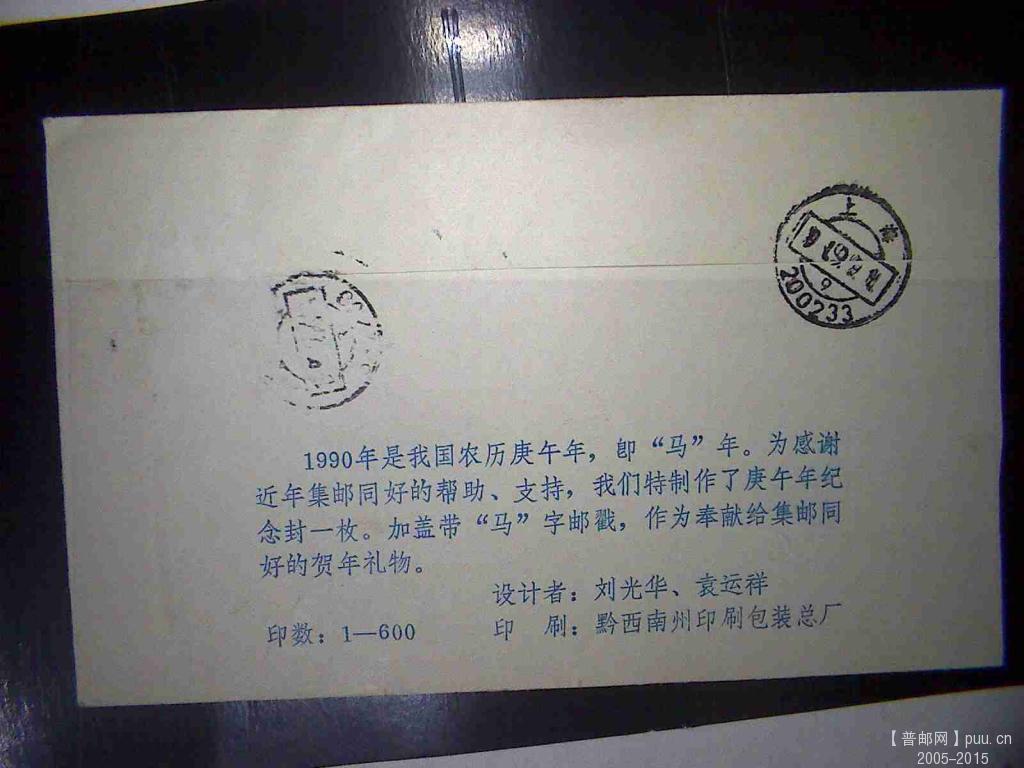 上海
200233
1990年是我国农历庚午年，即“马”年。为感谢
近年集邮同好的帮助、支持，我们特制作了庚午年纪
念封一枚。加盖带“马”字邮戳，作为奉献给集邮同
好的贺年礼物。
设计者：刘光华、袁运祥
印数：1—600
印　刷：黔西南州印刷包装总厂
【普邮网】puu.cn
2005-2015